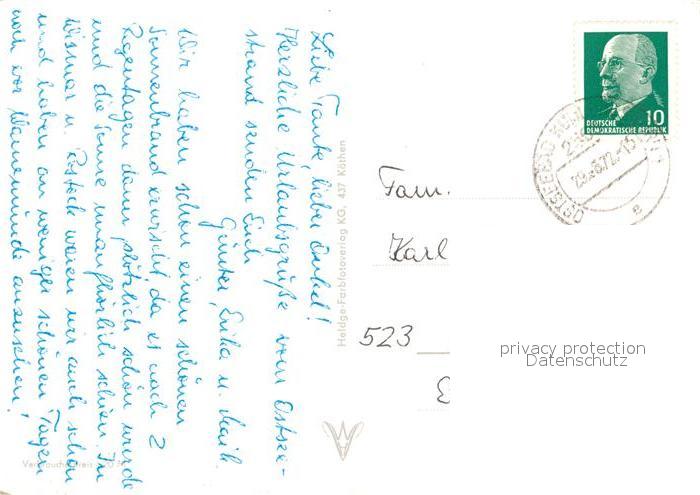 Liebe Tante, lieber Onkel!
Herzliche Urlaubsgrüße vom Ostsee-
strand senden Euch
Günter, Erika u. Maik
Wir haben schon einen schönen
Sonnenbrand erwischt, da es nach 2
Regentagen dann plötzlich schön wurde
und die Sonne unaufhörlich schien. In
Wismar u. Rostock waren wir auch schon
und haben an weniger schönen Tagen
noch vor Warnemünde anzusehen!
Heldge-Farbfotoverlag KG, 437 Köthen
DEUTSCHE
DEMOKRATISCHE REPUBLIK
10
OSTSEEBAD
29.6.72.-15
e
Fam.
Karl
523
privacy protection
Datenschutz